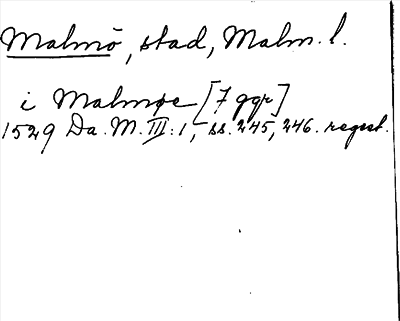 Malmö, stad, Malm. l.
i Malmøe [7 ggr]
1529 Da. M. III: 1, ss. 245, 246. regest.